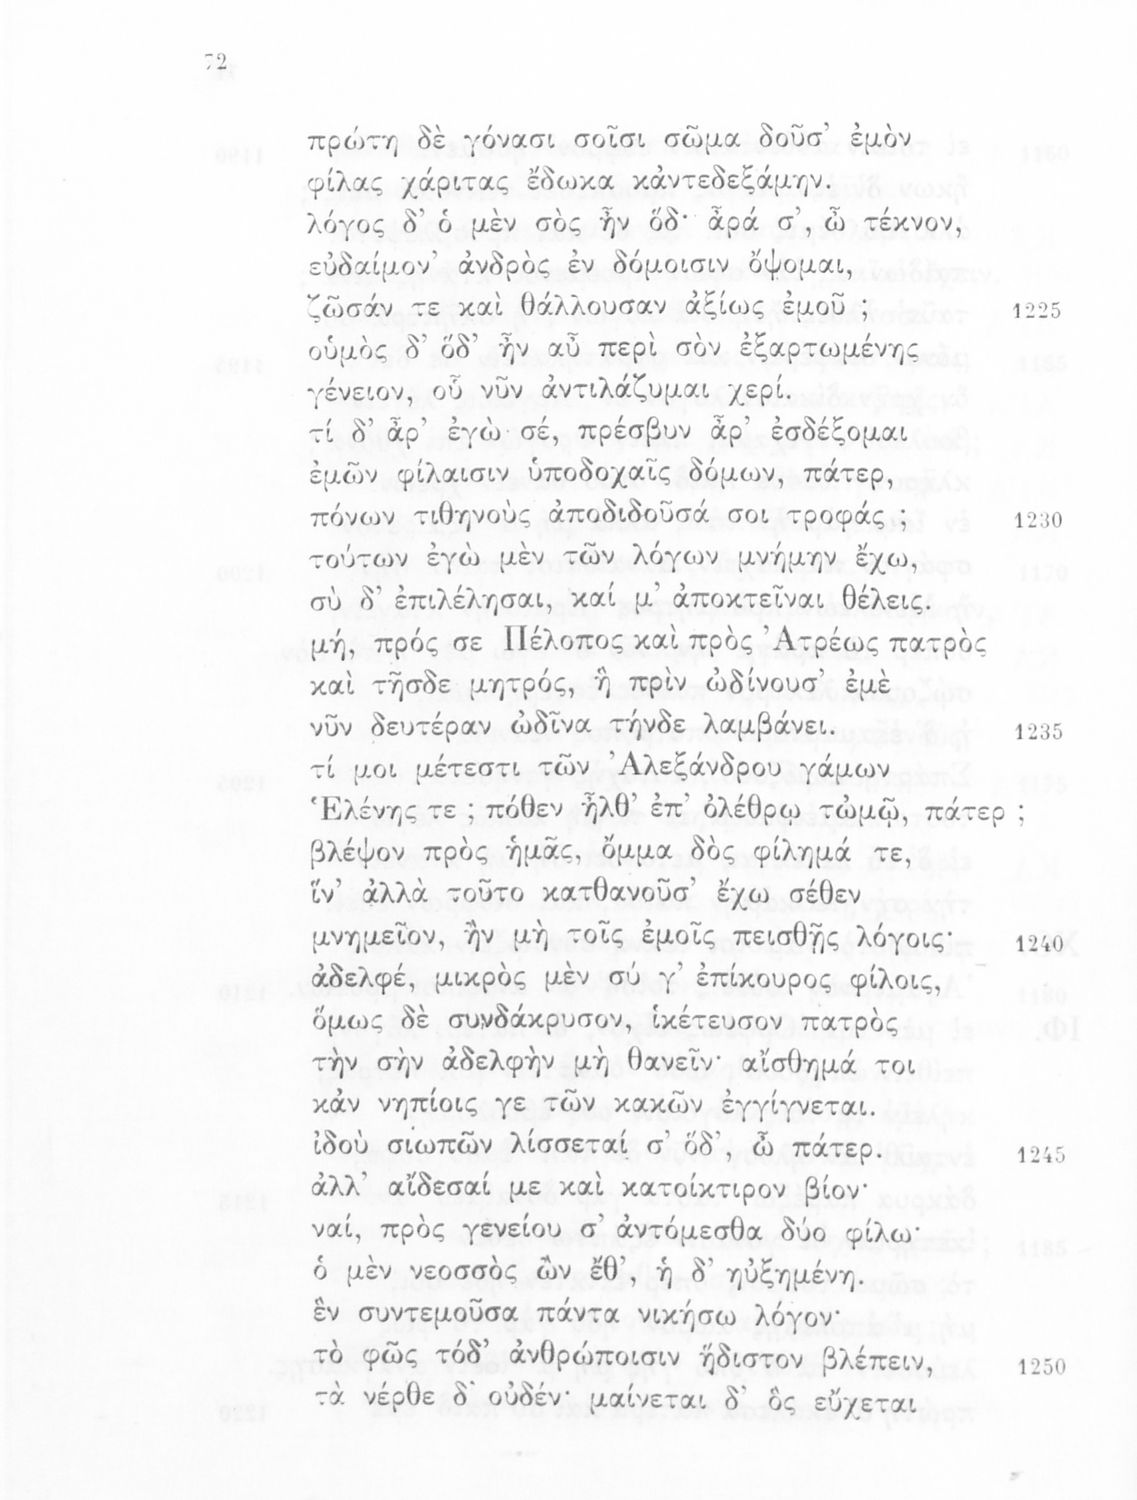 72
πρώτη δὲ γόνασι σοῖσι σῶμα δοῦσ’ ἐμὸν
φίλας χάριτας ἔδωκα κἀντεδεξάμην.
λόγος δ’ ὁ μὲν σὸς ἦν ὅδ· ἆρά σ’, ὦ τέκνον,
εὐδαίμον’ ἀνδρὸς ἐν δόμοισιν ὄψομαι,
ζῶσάν τε καὶ θάλλουσαν ἀξίως ἐμοῦ ; 1225
οὑμὸς δ’ ὅδ’ ἦν αὖ περὶ σὸν ἐξαρτωμένης
γένειον, οὗ νῦν ἀντιλάζυμαι χερί.
τί δ’ ἆρ’ ἐγὼ σέ, πρέσβυν ἆρ’ ἐσδέξομαι
ἐμῶν φίλαισιν ὑποδοχαῖς δόμων, πάτερ,
πόνων τιθηνοὺς ἀποδιδοῦσά σοι τροφάς ; 1230
τούτων ἐγὼ μὲν τῶν λόγων μνήμην ἔχω,
σὺ δ’ ἐπιλέλησαι, καί μ’ ἀποκτεῖναι θέλεις.
μή, πρός σε Πέλοπος καὶ πρὸς Ἀτρέως πατρὸς
καὶ τῆσδε μητρός, ἣ πρὶν ὠδίνουσ’ ἐμὲ
νῦν δευτέραν ὠδῖνα τήνδε λαμβάνει. 1235
τί μοι μέτεστι τῶν Ἀλεξάνδρου γάμων
Ἑλένης τε ; πόθεν ἦλθ’ ἐπ’ ὀλέθρῳ τὠμῷ, πάτερ ;
βλέψον πρὸς ἡμᾶς, ὄμμα δὸς φίλημά τε,
ἵν’ ἀλλὰ τοῦτο κατθανοῦσ’ ἔχω σέθεν
μνημεῖον, ἢν μὴ τοῖς ἐμοῖς πεισθῇς λόγοις· 1240
ἀδελφέ, μικρὸς μὲν σύ γ’ ἐπίκουρος φίλοις,
ὅμως δὲ συνδάκρυσον, ἱκέτευσον πατρὸς
τὴν σὴν ἀδελφὴν μὴ θανεῖν· αἴσθημά τοι
κἀν νηπίοις γε τῶν κακῶν ἐγγίγνεται.
ἰδοὺ σιωπῶν λίσσεταί σ’ ὅδ’, ὦ πάτερ. 1245
ἀλλ’ αἴδεσαί με καὶ κατοίκτιρον βίον·
ναί, πρὸς γενείου σ’ ἀντόμεσθα δύο φίλω·
ὁ μὲν νεοσσὸς ὢν ἔθ’, ἡ δ’ ηὐξημένη.
ἓν συντεμοῦσα πάντα νικήσω λόγον·
τὸ φῶς τόδ’ ἀνθρώποισιν ἥδιστον βλέπειν, 1250
τὰ νέρθε δ’ οὐδέν· μαίνεται δ’ ὃς εὔχεται